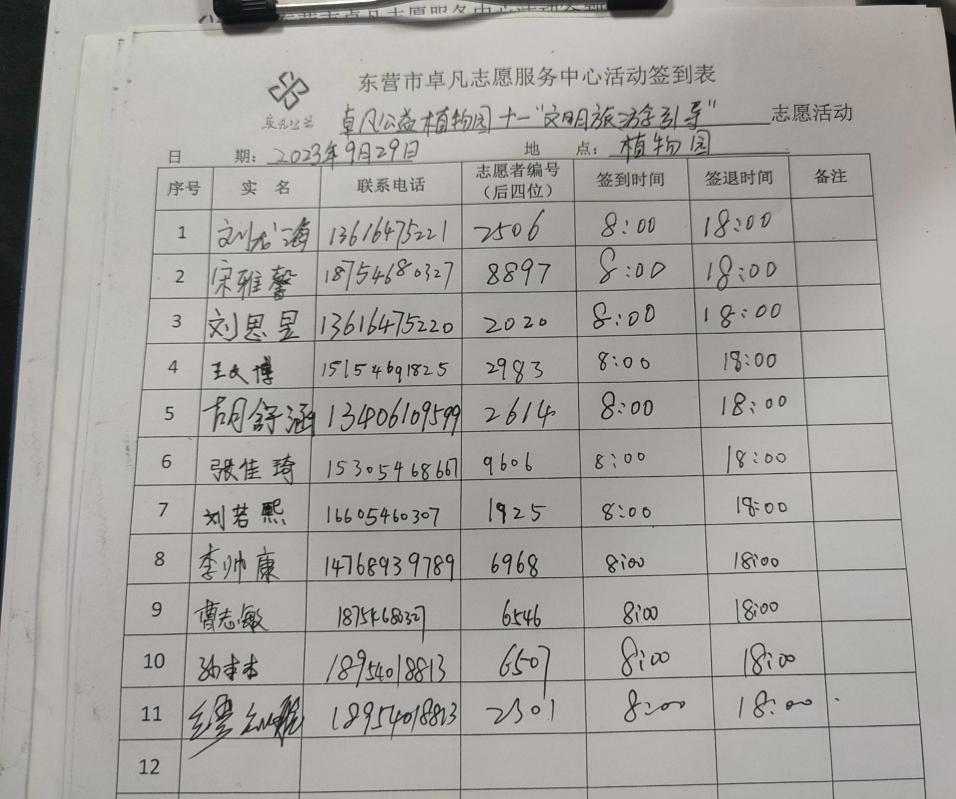 东营市卓凡志愿服务中心活动签到表
卓凡公益
卓凡公益植物园十一“文明旅游引导” 志愿活动
日 期: 2023年9月29日 地 点: 植物园
序号 实 名 联系电话 志愿者编号（后四位） 签到时间 签退时间 备注
1 刘海 13616475221 2506 8:00 18:00
2 宋雅馨 18754680327 8897 8:00 18:00
3 刘思昱 13616475220 2020 8:00 18:00
4 王文博 15154691825 2983 8:00 18:00
5 胡舒涵 13406109599 2614 8:00 18:00
6 张佳琦 15305468667 9606 8:00 18:00
7 刘若熙 16605460307 1925 8:00 18:00
8 李帅康 14768939789 6968 8:00 18:00
9 曹志敏 18754680327 6546 8:00 18:00
10 孙本本 18954018813 6507 8:00 18:00
11 18954018813 2301 8:00 18:00
12